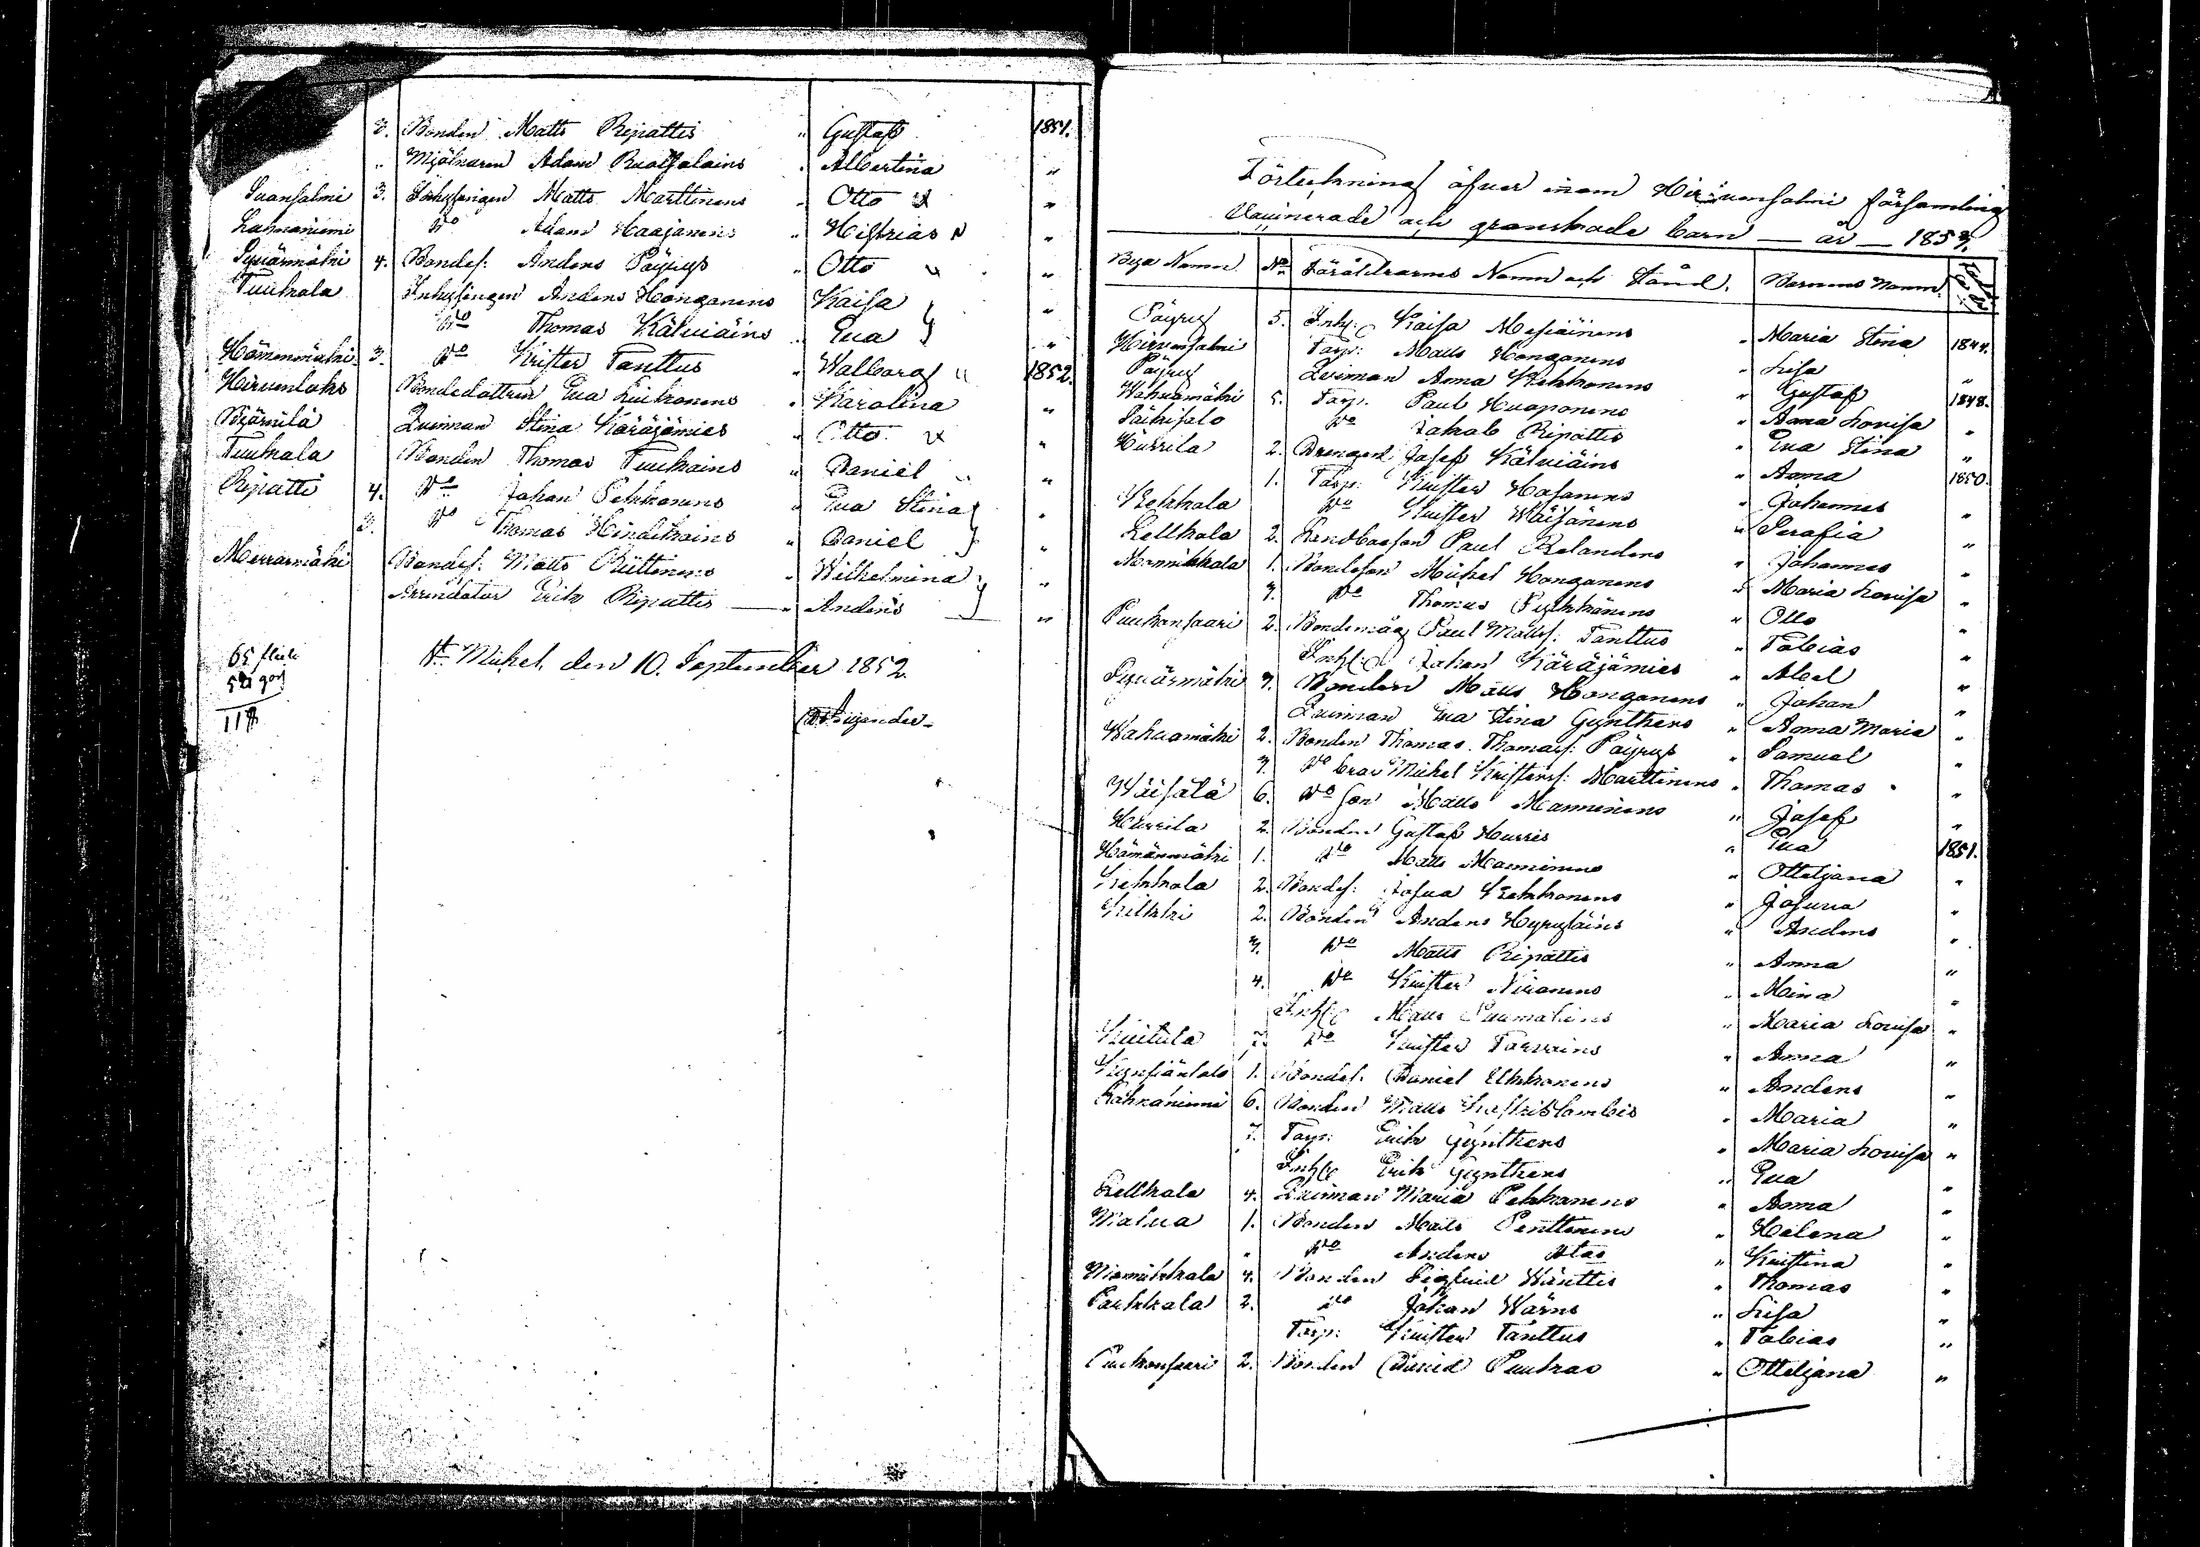 3. Bonden Matts Ripattis " Gustaf 1851.
" Mjölnaren Adam Ruotsalains " Albertina "
Suonsalmi 3. Inhysingen Matts Marttinens " Otto "
Lahnaniemi Do Adam Haajanens " "
Syväsmäki 4. Bondes: Anders Pöyrys " Otto "
Tuukala Inhysingen Anders Honganens Kaisa "
Do Thomas Kälviäins " Eva "
Hämeenmäki 3. Do Krister Tanttus " Walborg 1852.
Hirvenlaks Bondedottren Eva Liukonens " Karolina "
Pijämilä Qvinnan Stina Käräjämies " Otto "
Tuukala Bonden Thomas Tuukains " Daniel "
Ripatti 4. Do Johan Pekkonens " Eva Stina "
3. Do Thomas Hindikains " Daniel "
Merrasmäki Bondes: Matts Riittinens " Wilhelmina "
Arrendator Erik Ripattis " Anders "
65
52
117
St Mickel den 10. September 1852.
Förteckning öfver inom Hirvensalmi församling
Vaccinerade och granskade barn — år — 1853.
Bya Namn No Föräldrarnes Namn och Stånd. Barnens Namn
Pöyry 5. Inh: Kaisa Mesiäinens " Maria Stina 1844.
Hirvensalmi Torp: Matts Honganens " Lisa "
Pöyry Qvinnan Anna Kekkonens " Gustaf 1848.
Wahvamäki 5. Torp. Paul Huoponens " Anna Lovisa "
Päihisalo Do Jakob Ripattis " Eva Stina "
Hurrila 2. Drengen Josef Kälviäins " Anna 1850.
1. Torp: Krister Hasanens " Johannes "
Kekkala Do Krister Wäisänens " Serafia "
Lellkala 2. Landbosson Paul Relanders " Johannes "
Monnikkala 1. Bondeson Mickel Honganens " Maria Lovisa "
3. Do Thomas Pyykkönens " Otto "
Puukonsaari 2. Bondemåg Paul Mattss: Tanttus " Tobias "
Inh: Johan Käräjämies " Abel "
Syväsmäki 3. Bonden Matts Honganens " Johan "
Qvinnan Eva Stina Gynthers " Anna Maria "
Wahvamäki 2. Bonden Thomas Thomass: Pöyrys " Samuel "
3. Do bror Mickel Kristerss: Marttinens " Thomas "
Wäisälä 6. Do son Matts Manninens " Josef "
Hurrila 2. Bonden Gustaf Hurris " Eva 1851.
Hämeenmäki 1. Do Matts Manninens " Otteljana "
Kekkala 2. Bondes: Josua Kekkonens " Josuva "
Kilkki 2. Bonden Anders Hyyryläins " Anders "
3. Do Matts Ripattis " Anna "
4. Do Krister Niranens " Mina "
Inh: Matts Puumalains " Maria Lovisa "
Kuitula 7. Do Krister Tarvains " Anna "
1. Bondes. Daniel Ukkonens " Anders "
Lahnaniemi 6. Bonden Matts " Maria "
7. Torp: Erik Gynthers " Maria Lovisa "
Inh: Erik Gynthers " Eva "
Lellkala 4. Qvinnan Maria Pekkanens " Anna "
Malva 1. Bonden Matts Penttinens " Helena "
" Do Anders " Kristina "
Monnikkala 4. Bonden Sigfrid Wänttis " Thomas "
Parkkala 2. Do Johan Wärns " Lisa "
Torp: Krister Tanttus " Tobias "
Puukonsaari 2. Bonden David Puukas " Otteljana "